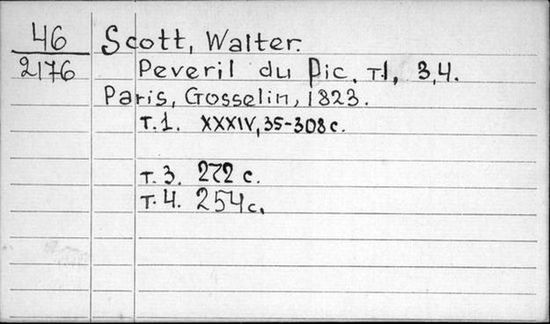 46 Scott, Walter.
2176 Peveril du Pic. т.1, 3,4.
Paris, Gosselin, 1823.
т.1. XXXIV, 35-308 с.
т.3. 272 с.
т.4. 254 с.